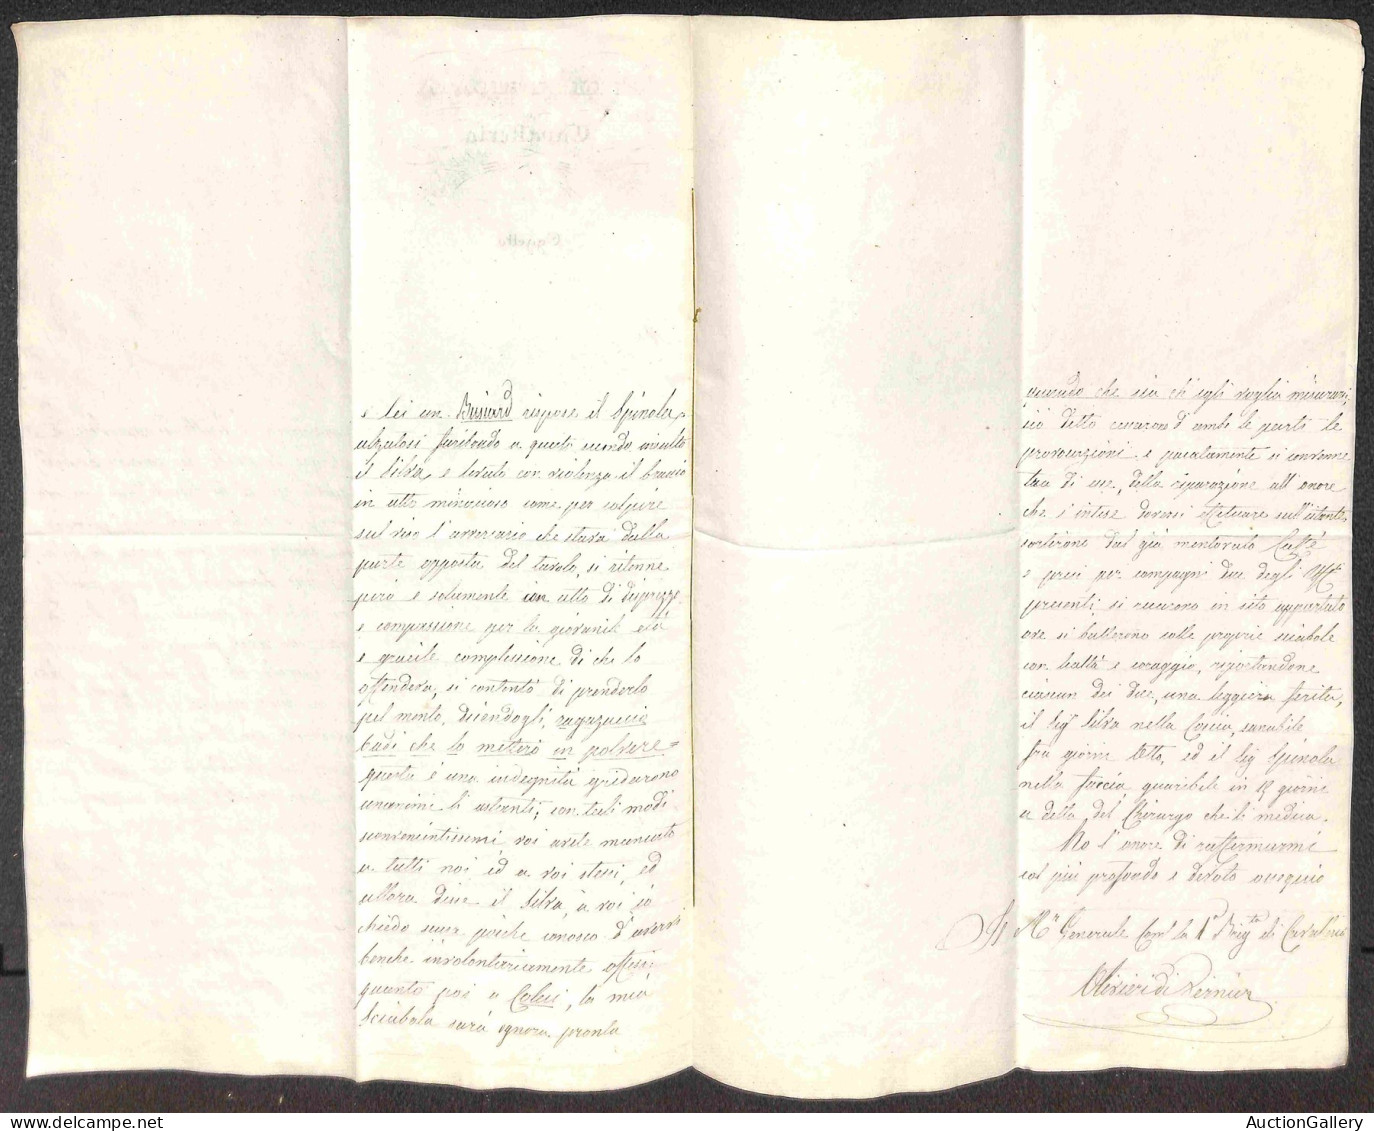 e lei un Busiard rispose il Spinola,
alzatosi furibondo a questo secondo insulto
il Silva, e levato con violenza il braccio
in atto minaccioso come per colpire
sul viso l'avversario che stava dalla
parte opposta del tavolo, si ritenne
però e solamente con atto di disprezzo
e compassione per la giovanile età
e gracile complessione di chi lo
offendeva, si contentò di prenderlo
pel mento, dicendogli, ragazzaccio
badi che lo metterò in polvere =
questa è una indegnità gridarono
unanimi li astanti; con tali modi
sconvenientissimi, voi avete mancato
a tutti noi ed a voi stessi, ed
allora disse il Silva, a voi io
chiedo scusa poiché conosco d'avervi
benché involontariamente offesi;
quanto poi a Colui, la mia
Sciabola sarà ognora pronta
quando che sia ch'egli voglia misurarsi,
ciò detto cessarono d'ambe le parti le
provocazioni e pacatamente si convenne
tra di essi, della riparazione all'onore
che s'intese doversi effettuare sull'istante,
sortirono dal già mentovato Caffè
e presi per compagni due degli Uff.li
presenti, si recarono in sito appartato
ove si batterono colle proprie sciabole
con lealtà e coraggio, riportandone
ciascun dei due, una leggiera ferita,
il Sig.r Silva nella Coscia, sanabile
fra giorni Otto, ed il Sig. Spinola
nella faccia, guaribile in 15 giorni
a detta del Chirurgo che li medica.
Ho l'onore di raffermarmi
col più profondo e devoto ossequio
Il M.r Generale Com.te la 1.a Brig.ta di Cavalleria
Olivieri di Vernier
AuctionGallery